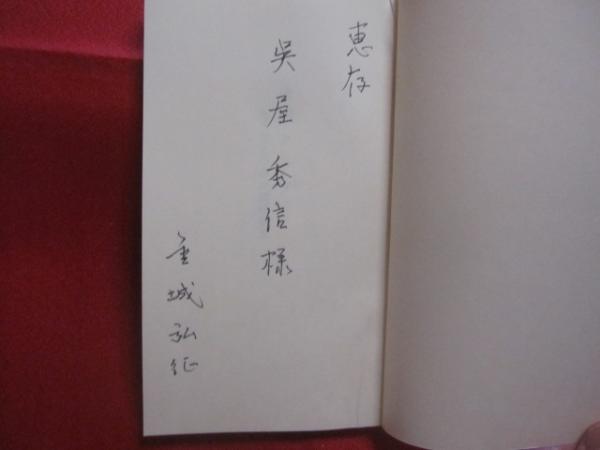 恵存
吳屋秀信様
金城弘征